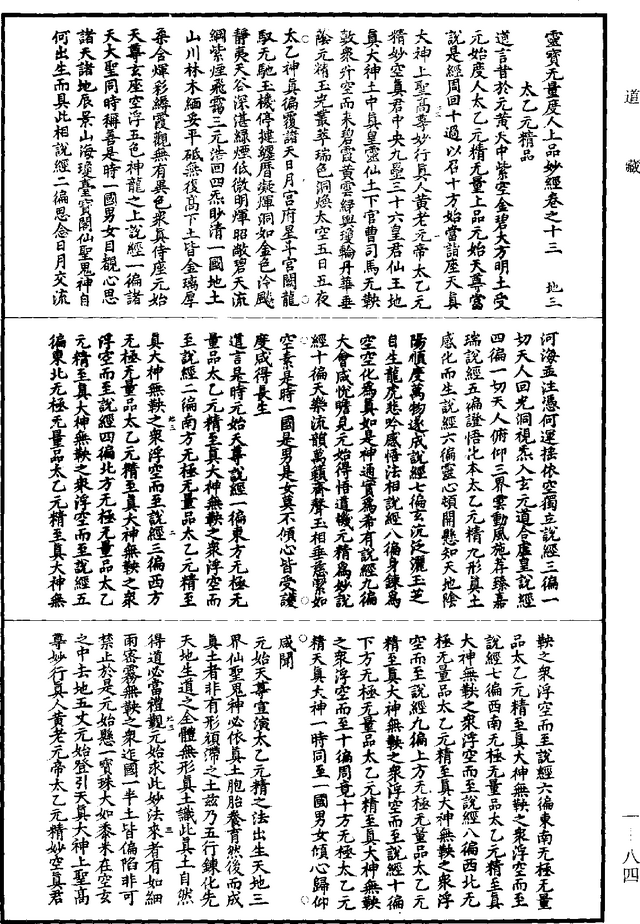 道藏
靈寶无量度人上品妙經卷之十三 地三
太乙元精品
道言昔於元黃天中紫空金碧大方明土受
元始度人太乙元精无量上品元始天尊當
說是經周回十過以召十方始當詣座天真
大神上聖高尊妙行真人黃老元帝太乙元
精妙空真君中央九壘三十六皇君仙王地
真大神土中真皇靈仙土下官曹司馬无鞅
數衆浮空而來碧霞黃雲綠輿瓊輪丹華垂
蔭元精玉光叢萃瑞色洞煥太空五日五夜
太乙神真徧覆諸天日月宮府星斗宮闕龍
馭元馳玉機停捷纏曆凝煇洞如金色泠颷
靜夷天谷深湛綠煙低微明煇昭敞碧天流
綱紫煙飛靄三元浩回四炁眇清一國地土
山川林木緬安平砥無復高下土皆金璃厚
桑含煇彩縟霞觀無有異色衆真侍座元始
天尊玄座空浮五色神龍之上說經一徧諸
天大聖同時稱善是時一國男女目觀心思
諸天諸地辰景山海瓊臺寶閣仙聖鬼神自
何出生而具此相說經二徧思念日月交流
河海孟注憑何運掿依空獨立說經三徧一
切天人回光洞視炁入玄元道合虛皇說經
四徧一切天人俯仰三界雲動風施荐臻嘉
瑞說經五徧證悟化本太乙元精九形真土
感化而生說經六徧靈心頓開懸知天地陰
陽順度萬物遂成說經七徧玄沉泛灑玉芝
自生龍虎悲吟感悟法相說經八徧身鍊爲
空空化爲真如是神通實爲希有說經九徧
大會咸忱瞻見元始得悟道機元精爲妙說
經十徧天樂流韻萬籟齊聲玉相垂慈綮如
空素是時一國是男是女莫不傾心皆受護
度咸得長生
道言是時元始天尊說經一徧東方无極无
量品太乙元精至真大神無鞅之衆浮空而
至說經二徧南方无極无量品太乙元精至
真大神無鞅之衆浮空而至說經三徧西方
无極无量品太乙元精至真大神無鞅之衆
浮空而至說經四徧北方无極无量品太乙
元精至真大神無鞅之衆浮空而至說經五
徧東北无極无量品太乙元精至真大神無
鞅之衆浮空而至說經六徧東南无極无量
品太乙元精至真大神無鞅之衆浮空而至
說經七徧西南无極无量品太乙元精至真
大神無鞅之衆浮空而至說經八徧西北无
極无量品太乙元精至真大神無鞅之衆浮
空而至說經九徧上方无極无量品太乙元
精至真大神無鞅之衆浮空而至說經十徧
下方无極无量品太乙元精至真大神無鞅
之衆浮空而至十徧周竟十方无極太乙元
精天真大神一時同至一國男女傾心歸仰
咸聞
元始天尊宣演太乙元精之法出生天地三
界仙聖鬼神必依真土胞胎養育然後而成
真土者非有形須滯之土茲乃五行鍊化先
天地生道之全體無形真土識此真土自然
得道必當禮觀元始求此妙法來者有如細
雨密霧無鞅之衆迮國一半土皆偏陷非可
禁止於是元始懸一寶珠大如黍米在空玄
之中去地五丈元始登引天真大神上聖高
尊妙行真人黃老元帝太乙元精妙空真君
一－八四